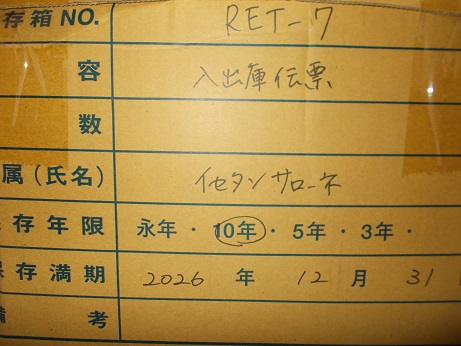 存箱NO. RET-7
容 入出庫伝票
数
属(氏名) イセタンサローネ
存年限 永年・10年・5年・3年・
保存満期 2026年12月31
備考